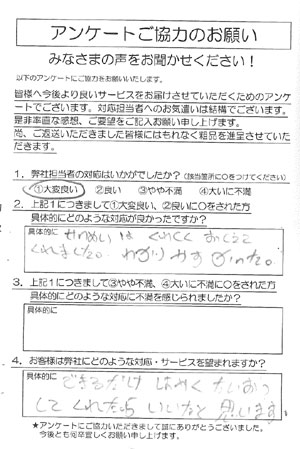 アンケートご協力のお願い
みなさまの声をお聞かせください！
以下のアンケートにご協力をお願いいたします。
皆様へ今後より良いサービスをお届けさせていただくためのアンケー
トでございます。対応担当者へのお気遣いは結構でございます。
是非率直な感想、ご要望をご記入お願い申し上げます。
尚、ご返送いただきました皆様にはもれなく粗品を進呈させていた
だきます。
1．弊社担当者の対応はいかがでしたか？（該当箇所に○をつけてください）
①大変良い　②良い　③やや不満　④大いに不満
2．上記1につきまして①大変良い、②良いに○をされた方
具体的にどのような対応が良かったですか？
具体的に
せつめい は くわしく おしえて
くれました。 わかりやすかった。
3．上記1につきまして③やや不満、④大いに不満に○をされた方
具体的にどのような対応に不満を感じられましたか？
具体的に
4．お客様は弊社にどのような対応・サービスを望まれますか？
具体的に
できるだけ はやく たいおう
して くれたら いいなと 思います
★アンケートにご協力いただきまして誠にありがとうございました。
今後とも何卒宜しくお願い申し上げます。